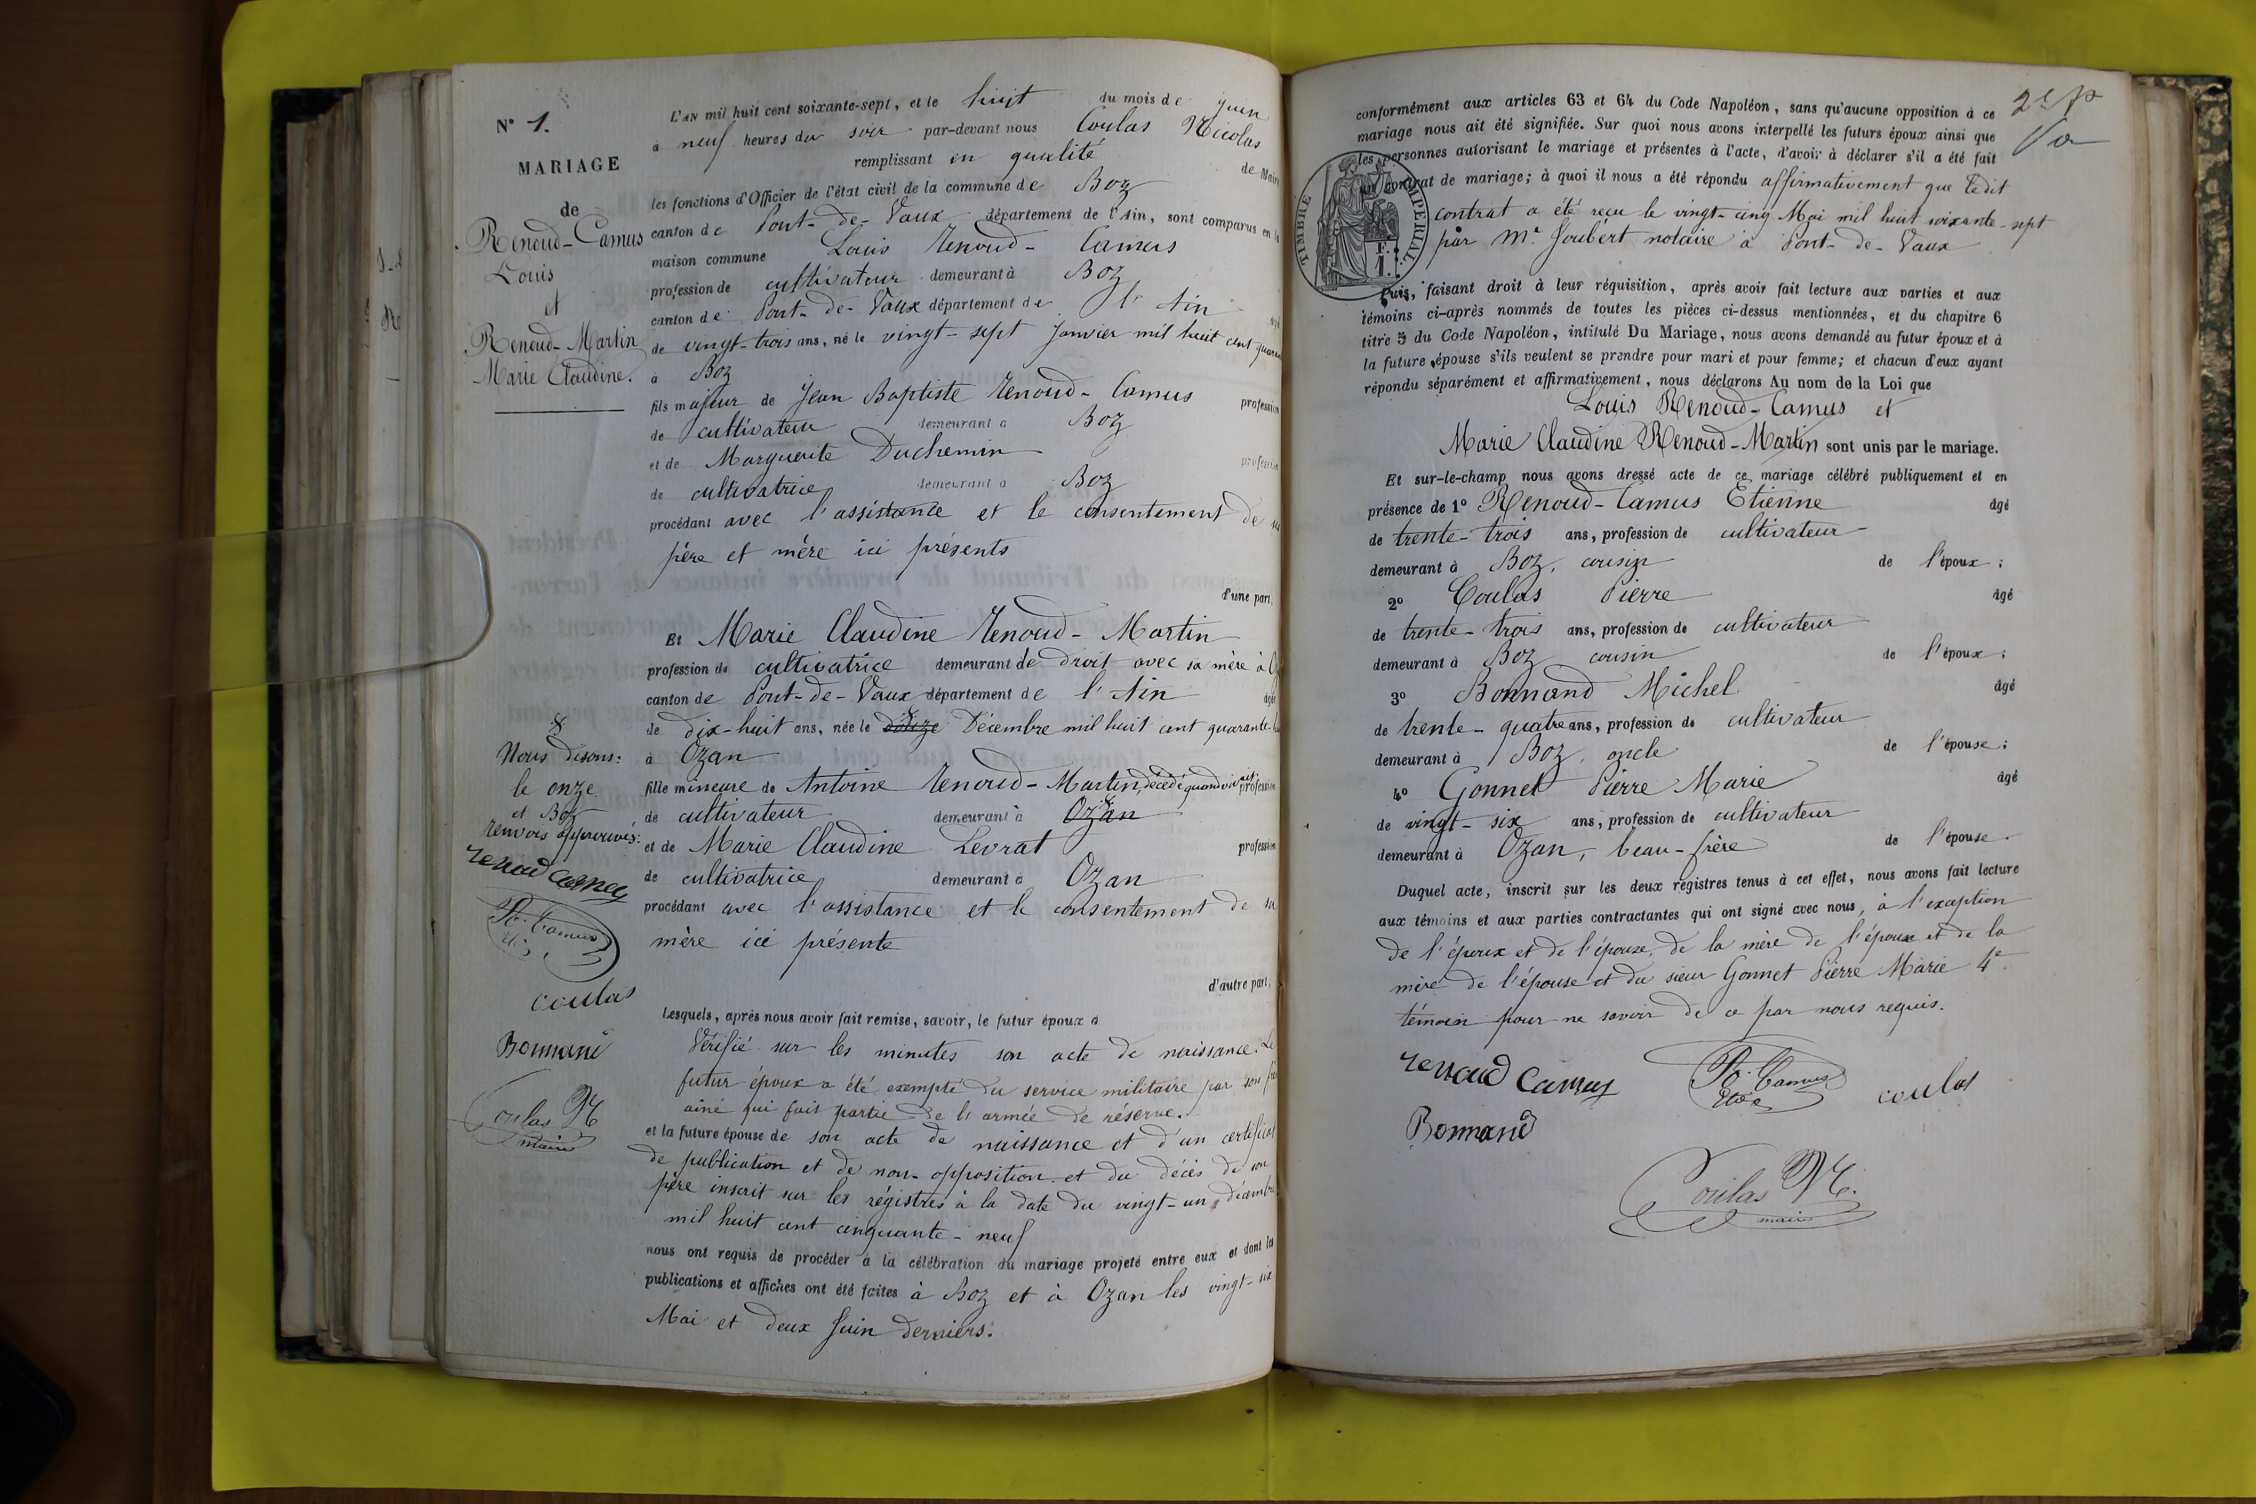 N° 1.
MARIAGE
de
Renoud-Camus
Louis
et
Renoud-Martin
Marie Claudine.
L'AN mil huit cent soixante-sept, et le huit du mois de Juin
à neuf heures du soir par-devant nous Coulas Nicolas
remplissant en qualité de Maire
les fonctions d'Officier de l'état civil de la commune de Boz
canton de Pont-de-Vaux département de l'Ain, sont comparus en la
maison commune Louis Renoud-Camus
profession de cultivateur demeurant à Boz
canton de Pont-de-Vaux département de l'Ain
de vingt-trois ans, né le vingt-sept Janvier mil huit cent
à Boz
fils majeur de Jean Baptiste Renoud-Camus profession
de cultivateur demeurant à Boz
et de Marguerite Duchemin profession
de cultivatrice demeurant à Boz
procédant avec l'assistance et le consentement de
père et mère ici présents
d'une part,
Et Marie Claudine Renoud-Martin
profession de cultivatrice demeurant de droit avec sa mère à
canton de Pont-de-Vaux département de l'Ain âgée
de dix-huit ans, née le douze Décembre mil huit cent quarante
à Ozan
fille mineure de Antoine Renoud-Martin, décédé quand vivait profession
de cultivateur demeurant à Ozan
et de Marie Claudine Levrat profession
de cultivatrice demeurant à Ozan
procédant avec l'assistance et le consentement de sa
mère ici présente
d'autre part,
Lesquels, après nous avoir fait remise, savoir, le futur époux a
Vérifié sur les minutes son acte de naissance. Le
futur époux a été exempté du service militaire par son
ainé qui fait partie de l'armée de réserve.
et la future épouse de son acte de naissance et d'un certificat
de publication et de non-opposition et du décès de son
père inscrit sur les régistres à la date du vingt-un décembre
mil huit cent cinquante-neuf
nous ont requis de procéder à la célébration du mariage projeté entre eux et dont les
publications et affiches ont été faites à Boz et à Ozan les vingt-six
Mai et deux Juin derniers.
Nous disons:
le onze
et Boz
renvois approuvés:
renoud camus
Rd. Camus
coulas
Bonnand
Coulas N.
maire
2e
conformément aux articles 63 et 64 du Code Napoléon, sans qu'aucune opposition à ce
mariage nous ait été signifiée. Sur quoi nous avons interpellé les futurs époux ainsi que
les personnes autorisant le mariage et présentes à l'acte, d'avoir à déclarer s'il a été fait
un contrat de mariage; à quoi il nous a été répondu affirmativement que ledit
contrat a été reçu le vingt-cinq Mai mil huit soixante-sept
par Me Joubert notaire à Pont-de-Vaux
TIMBRE IMPÉRIAL
F.
1.
Puis, faisant droit à leur réquisition, après avoir fait lecture aux parties et aux
témoins ci-après nommés de toutes les pièces ci-dessus mentionnées, et du chapitre 6
titre 5 du Code Napoléon, intitulé Du Mariage, nous avons demandé au futur époux et à
la future épouse s'ils veulent se prendre pour mari et pour femme; et chacun d'eux ayant
répondu séparément et affirmativement, nous déclarons Au nom de la Loi que
Louis Renoud-Camus et
Marie Claudine Renoud-Martin sont unis par le mariage.
Et sur-le-champ nous avons dressé acte de ce mariage célébré publiquement et en
présence de 1° Renoud-Camus Etienne âgé
de trente-trois ans, profession de cultivateur
demeurant à Boz, cousin de l'époux;
2° Coulas Pierre âgé
de trente-trois ans, profession de cultivateur
demeurant à Boz cousin de l'époux;
3° Bonnand Michel âgé
de trente-quatre ans, profession de cultivateur
demeurant à Boz, oncle de l'épouse;
4° Gonnet Pierre Marie âgé
de vingt-six ans, profession de cultivateur
demeurant à Ozan, beau-frère de l'épouse.
Duquel acte, inscrit sur les deux registres tenus à cet effet, nous avons fait lecture
aux témoins et aux parties contractantes qui ont signé avec nous, à l'exception
de l'époux et de l'épouse, de la mère de l'époux et de la
mère de l'épouse et du sieur Gonnet Pierre Marie 4e
témoin pour ne savoir de ce par nous requis.
renoud Camus
Rd. Camus
Etne
coulas
Bonnand
Coulas N.
maire